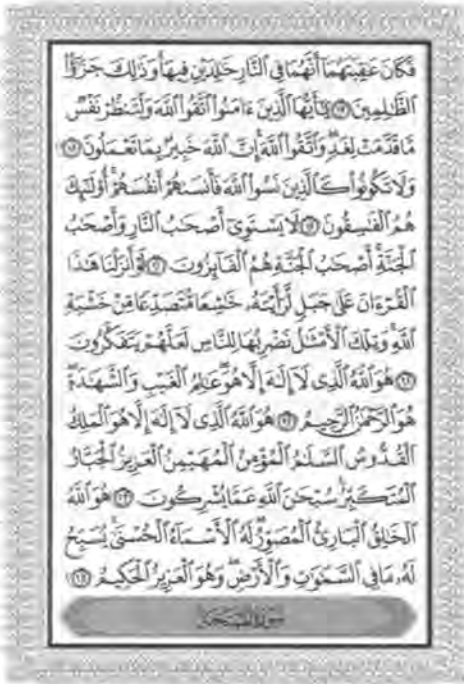 فَكَانَ عَٰقِبَتَهُمَآ أَنَّهُمَا فِى ٱلنَّارِ خَٰلِدَيْنِ فِيهَا ۚ وَذَٰلِكَ جَزَٰٓؤُا۟
ٱلظَّٰلِمِينَ ۝١٧ يَٰٓأَيُّهَا ٱلَّذِينَ ءَامَنُوا۟ ٱتَّقُوا۟ ٱللَّهَ وَلْتَنظُرْ نَفْسٌ
مَّا قَدَّمَتْ لِغَدٍ ۖ وَٱتَّقُوا۟ ٱللَّهَ ۚ إِنَّ ٱللَّهَ خَبِيرٌۢ بِمَا تَعْمَلُونَ ۝١٨
وَلَا تَكُونُوا۟ كَٱلَّذِينَ نَسُوا۟ ٱللَّهَ فَأَنسَىٰهُمْ أَنفُسَهُمْ ۚ أُو۟لَٰٓئِكَ
هُمُ ٱلْفَٰسِقُونَ ۝١٩ لَا يَسْتَوِىٓ أَصْحَٰبُ ٱلنَّارِ وَأَصْحَٰبُ
ٱلْجَنَّةِ ۚ أَصْحَٰبُ ٱلْجَنَّةِ هُمُ ٱلْفَآئِزُونَ ۝٢٠ لَوْ أَنزَلْنَا هَٰذَا
ٱلْقُرْءَانَ عَلَىٰ جَبَلٍ لَّرَأَيْتَهُۥ خَٰشِعًا مُّتَصَدِّعًا مِّنْ خَشْيَةِ
ٱللَّهِ ۚ وَتِلْكَ ٱلْأَمْثَٰلُ نَضْرِبُهَا لِلنَّاسِ لَعَلَّهُمْ يَتَفَكَّرُونَ
۝٢١ هُوَ ٱللَّهُ ٱلَّذِى لَآ إِلَٰهَ إِلَّا هُوَ ۖ عَٰلِمُ ٱلْغَيْبِ وَٱلشَّهَٰدَةِ ۖ
هُوَ ٱلرَّحْمَٰنُ ٱلرَّحِيمُ ۝٢٢ هُوَ ٱللَّهُ ٱلَّذِى لَآ إِلَٰهَ إِلَّا هُوَ ٱلْمَلِكُ
ٱلْقُدُّوسُ ٱلسَّلَٰمُ ٱلْمُؤْمِنُ ٱلْمُهَيْمِنُ ٱلْعَزِيزُ ٱلْجَبَّارُ
ٱلْمُتَكَبِّرُ ۚ سُبْحَٰنَ ٱللَّهِ عَمَّا يُشْرِكُونَ ۝٢٣ هُوَ ٱللَّهُ
ٱلْخَٰلِقُ ٱلْبَارِئُ ٱلْمُصَوِّرُ ۖ لَهُ ٱلْأَسْمَآءُ ٱلْحُسْنَىٰ ۚ يُسَبِّحُ
لَهُۥ مَا فِى ٱلسَّمَٰوَٰتِ وَٱلْأَرْضِ ۖ وَهُوَ ٱلْعَزِيزُ ٱلْحَكِيمُ ۝٢٤